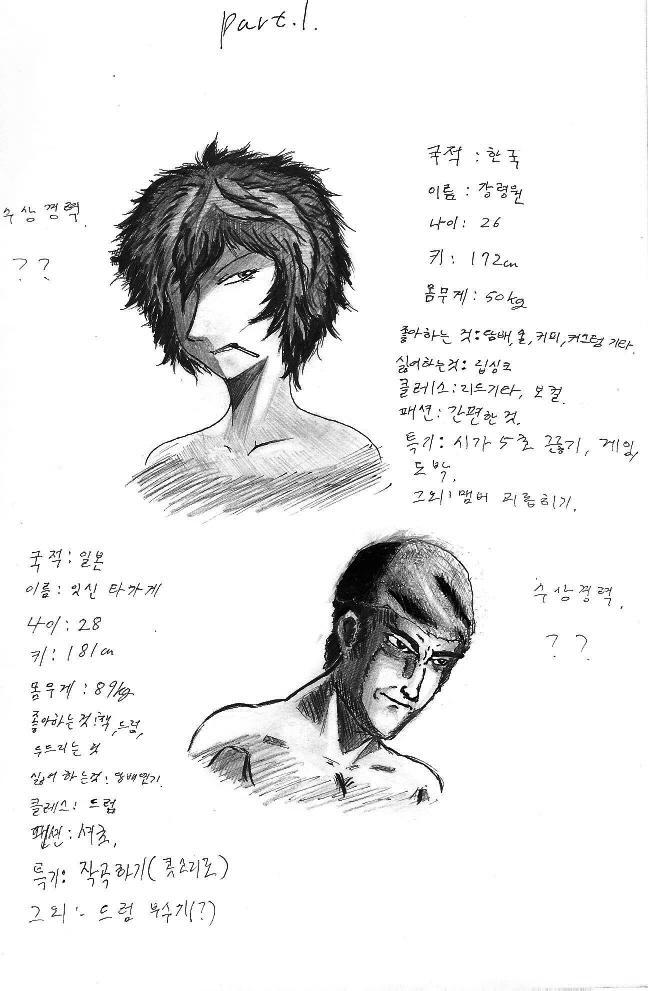 part.1.
국적 : 한국
이름 : 강령원
나이 : 26
키 : 172cm
몸무게 : 50kg
좋아하는 것 : 담배, 술, 커피, 커스텀 기타.
싫어하는것 : 립싱크
클레스 : 리드기타, 보컬.
패션 : 간편한 것.
특기 : 시가 5초 끊기, 게임,
도박.
그외 : 맴버 괴롭히기.
수상경력.
??
국적 : 일본
이름 : 잇신 타가게
나이 : 28
키 : 181cm
몸무게 : 89kg
좋아하는것 : 책, 드럼,
두드리는 것
싫어 하는것 : 담배연기.
클레스 : 드럼
패션 : 셔츠.
특기 : 작곡하기( 콧소리로 )
그외 :- 드럼 부수기(?)
수상경력.
??